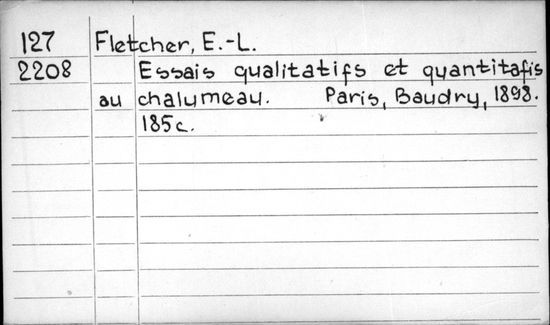 127 Fletcher, E.-L.
2208 Essais qualitatifs et quantitafis
au chalumeau. Paris, Baudry, 1898.
185c.